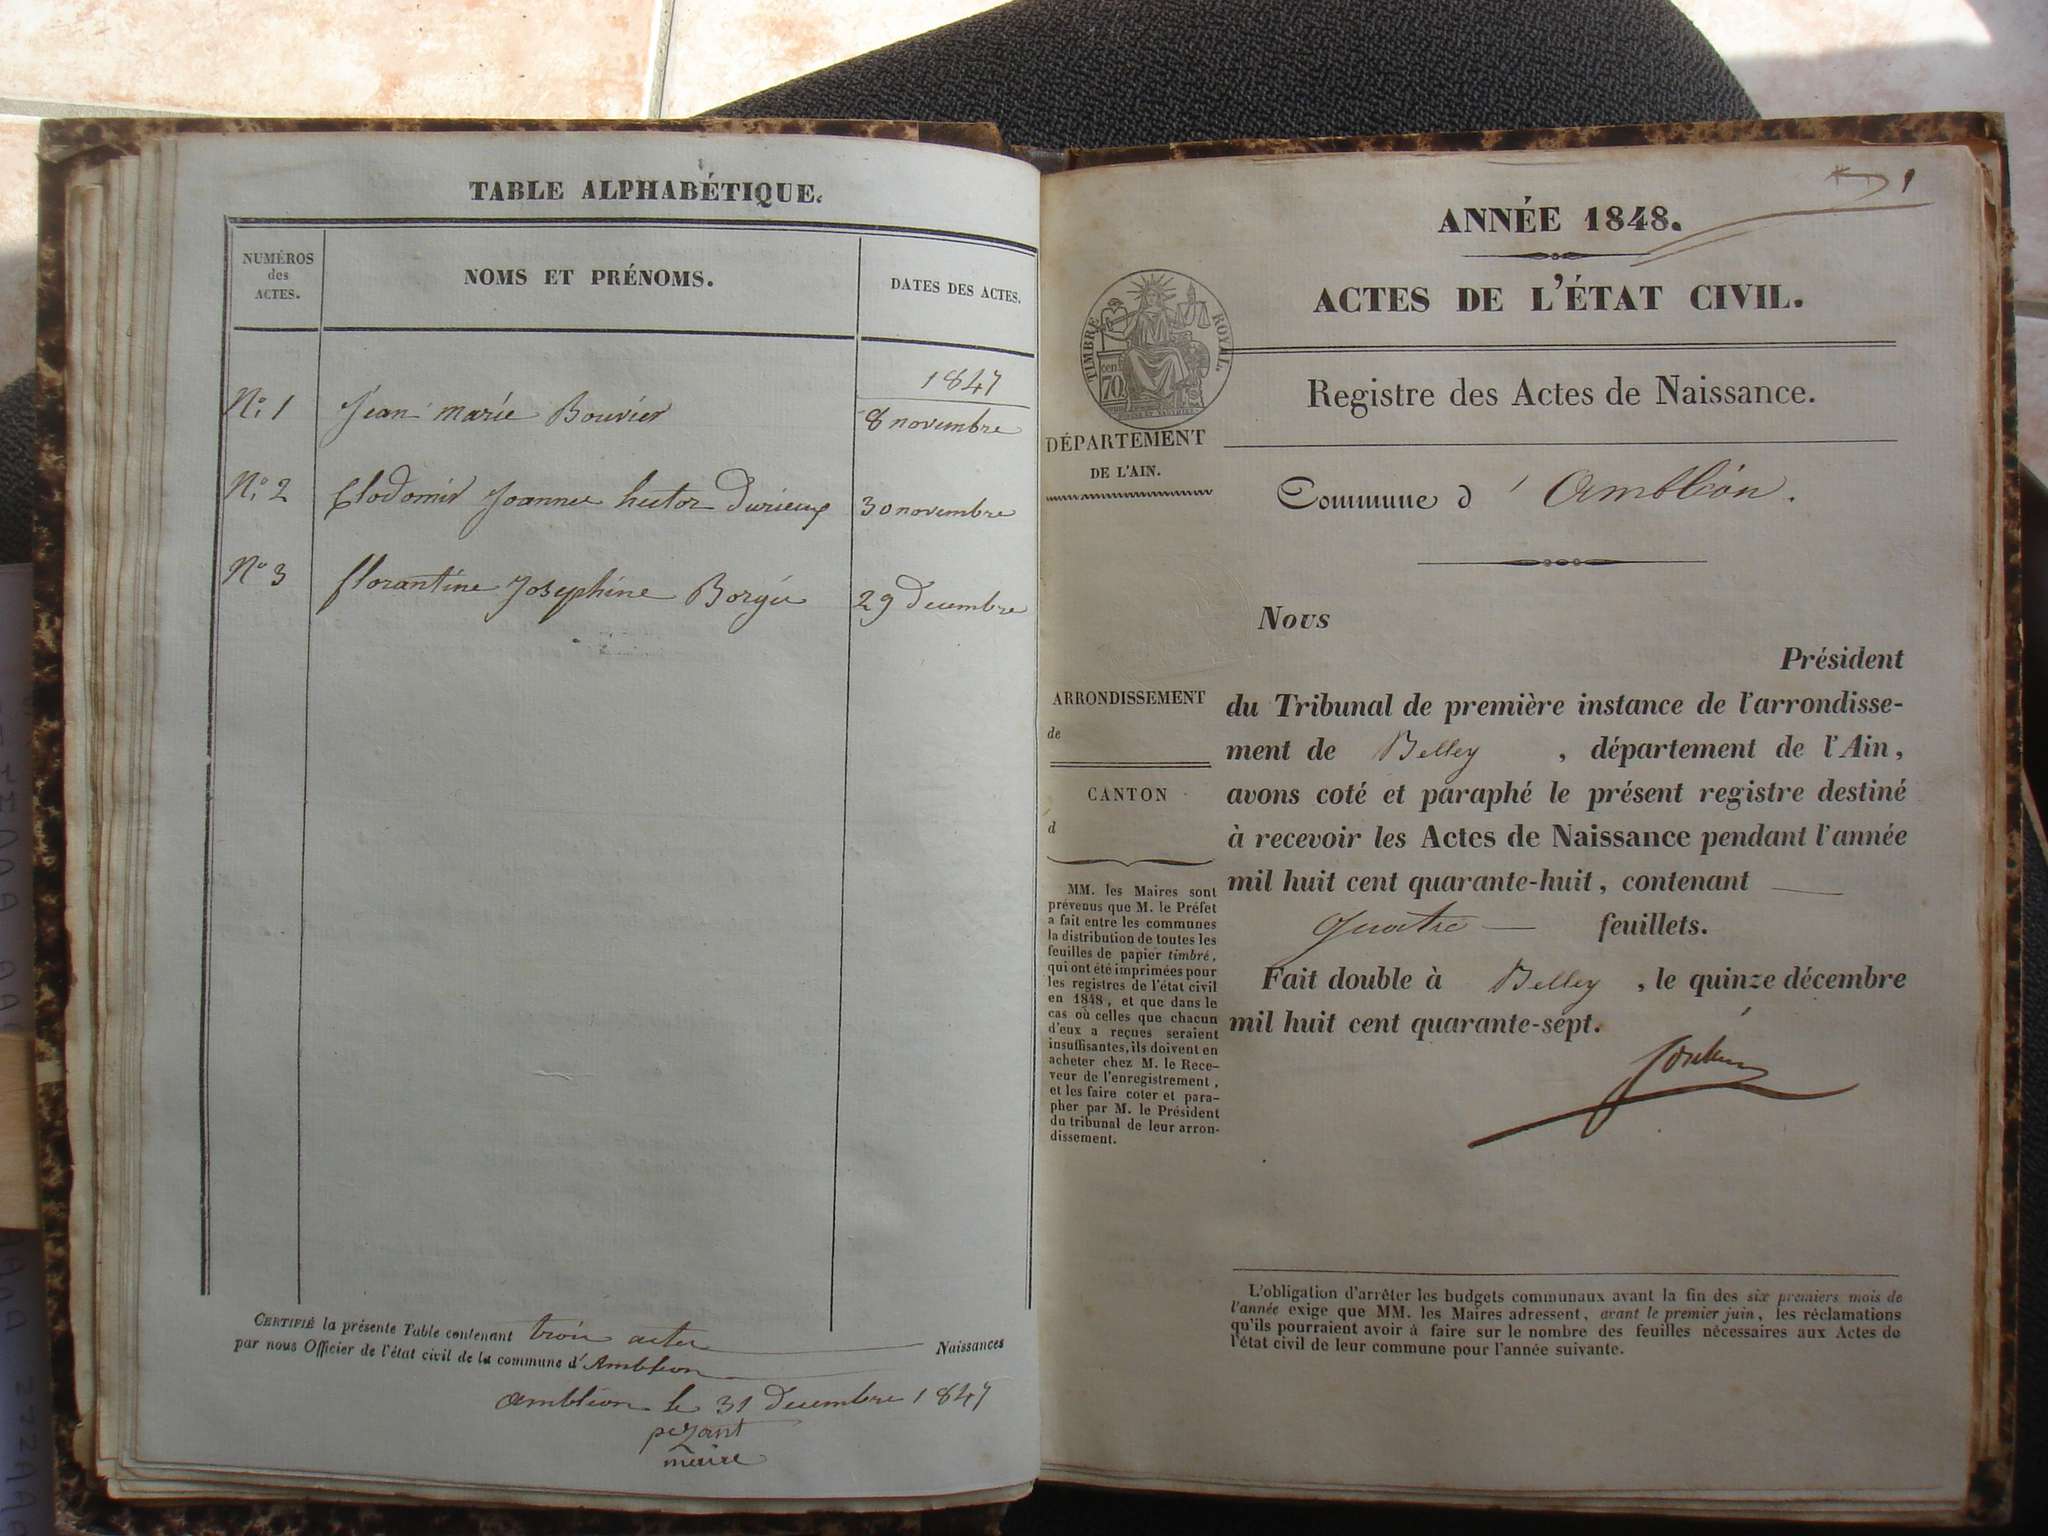 TABLE ALPHABÉTIQUE.
NUMÉROS
des
ACTES.
NOMS ET PRÉNOMS.
DATES DES ACTES.
1847
N.o 1 Jean marie Bouvier 8 novembre
N.o 2 Clodomir Joannes hector Durieux 30 novembre
N.o 3 florantine Josephine 29 decembre
CERTIFIÉ la présente Table contenant trois actes Naissances
par nous Officier de l'état civil de la commune d'Ambléon
Ambléon le 31 decembre 1847
pezant
maire
1
ANNÉE 1848.
ACTES DE L'ÉTAT CIVIL.
TIMBRE ROYAL.
70 cen
Registre des Actes de Naissance.
DÉPARTEMENT
DE L'AIN.
Commune d'Ambléon.
Nous
Président
ARRONDISSEMENT
de
CANTON
d
du Tribunal de première instance de l'arrondisse-
ment de Belley , département de l'Ain,
avons coté et paraphé le présent registre destiné
à recevoir les Actes de Naissance pendant l'année
mil huit cent quarante-huit, contenant
quatre feuillets.
Fait double à Belley , le quinze décembre
mil huit cent quarante-sept.
MM. les Maires sont
prévenus que M. le Préfet
a fait entre les communes
la distribution de toutes les
feuilles de papier timbré,
qui ont été imprimées pour
les registres de l'état civil
en 1848, et que dans le
cas où celles que chacun
d'eux a reçues seraient
insuffisantes, ils doivent en
acheter chez M. le Rece-
veur de l'enregistrement,
et les faire coter et para-
pher par M. le Président
du tribunal de leur arron-
dissement.
L'obligation d'arrêter les budgets communaux avant la fin des six premiers mois de
l'année exige que MM. les Maires adressent, avant le premier juin, les réclamations
qu'ils pourraient avoir à faire sur le nombre des feuilles nécessaires aux Actes de
l'état civil de leur commune pour l'année suivante.